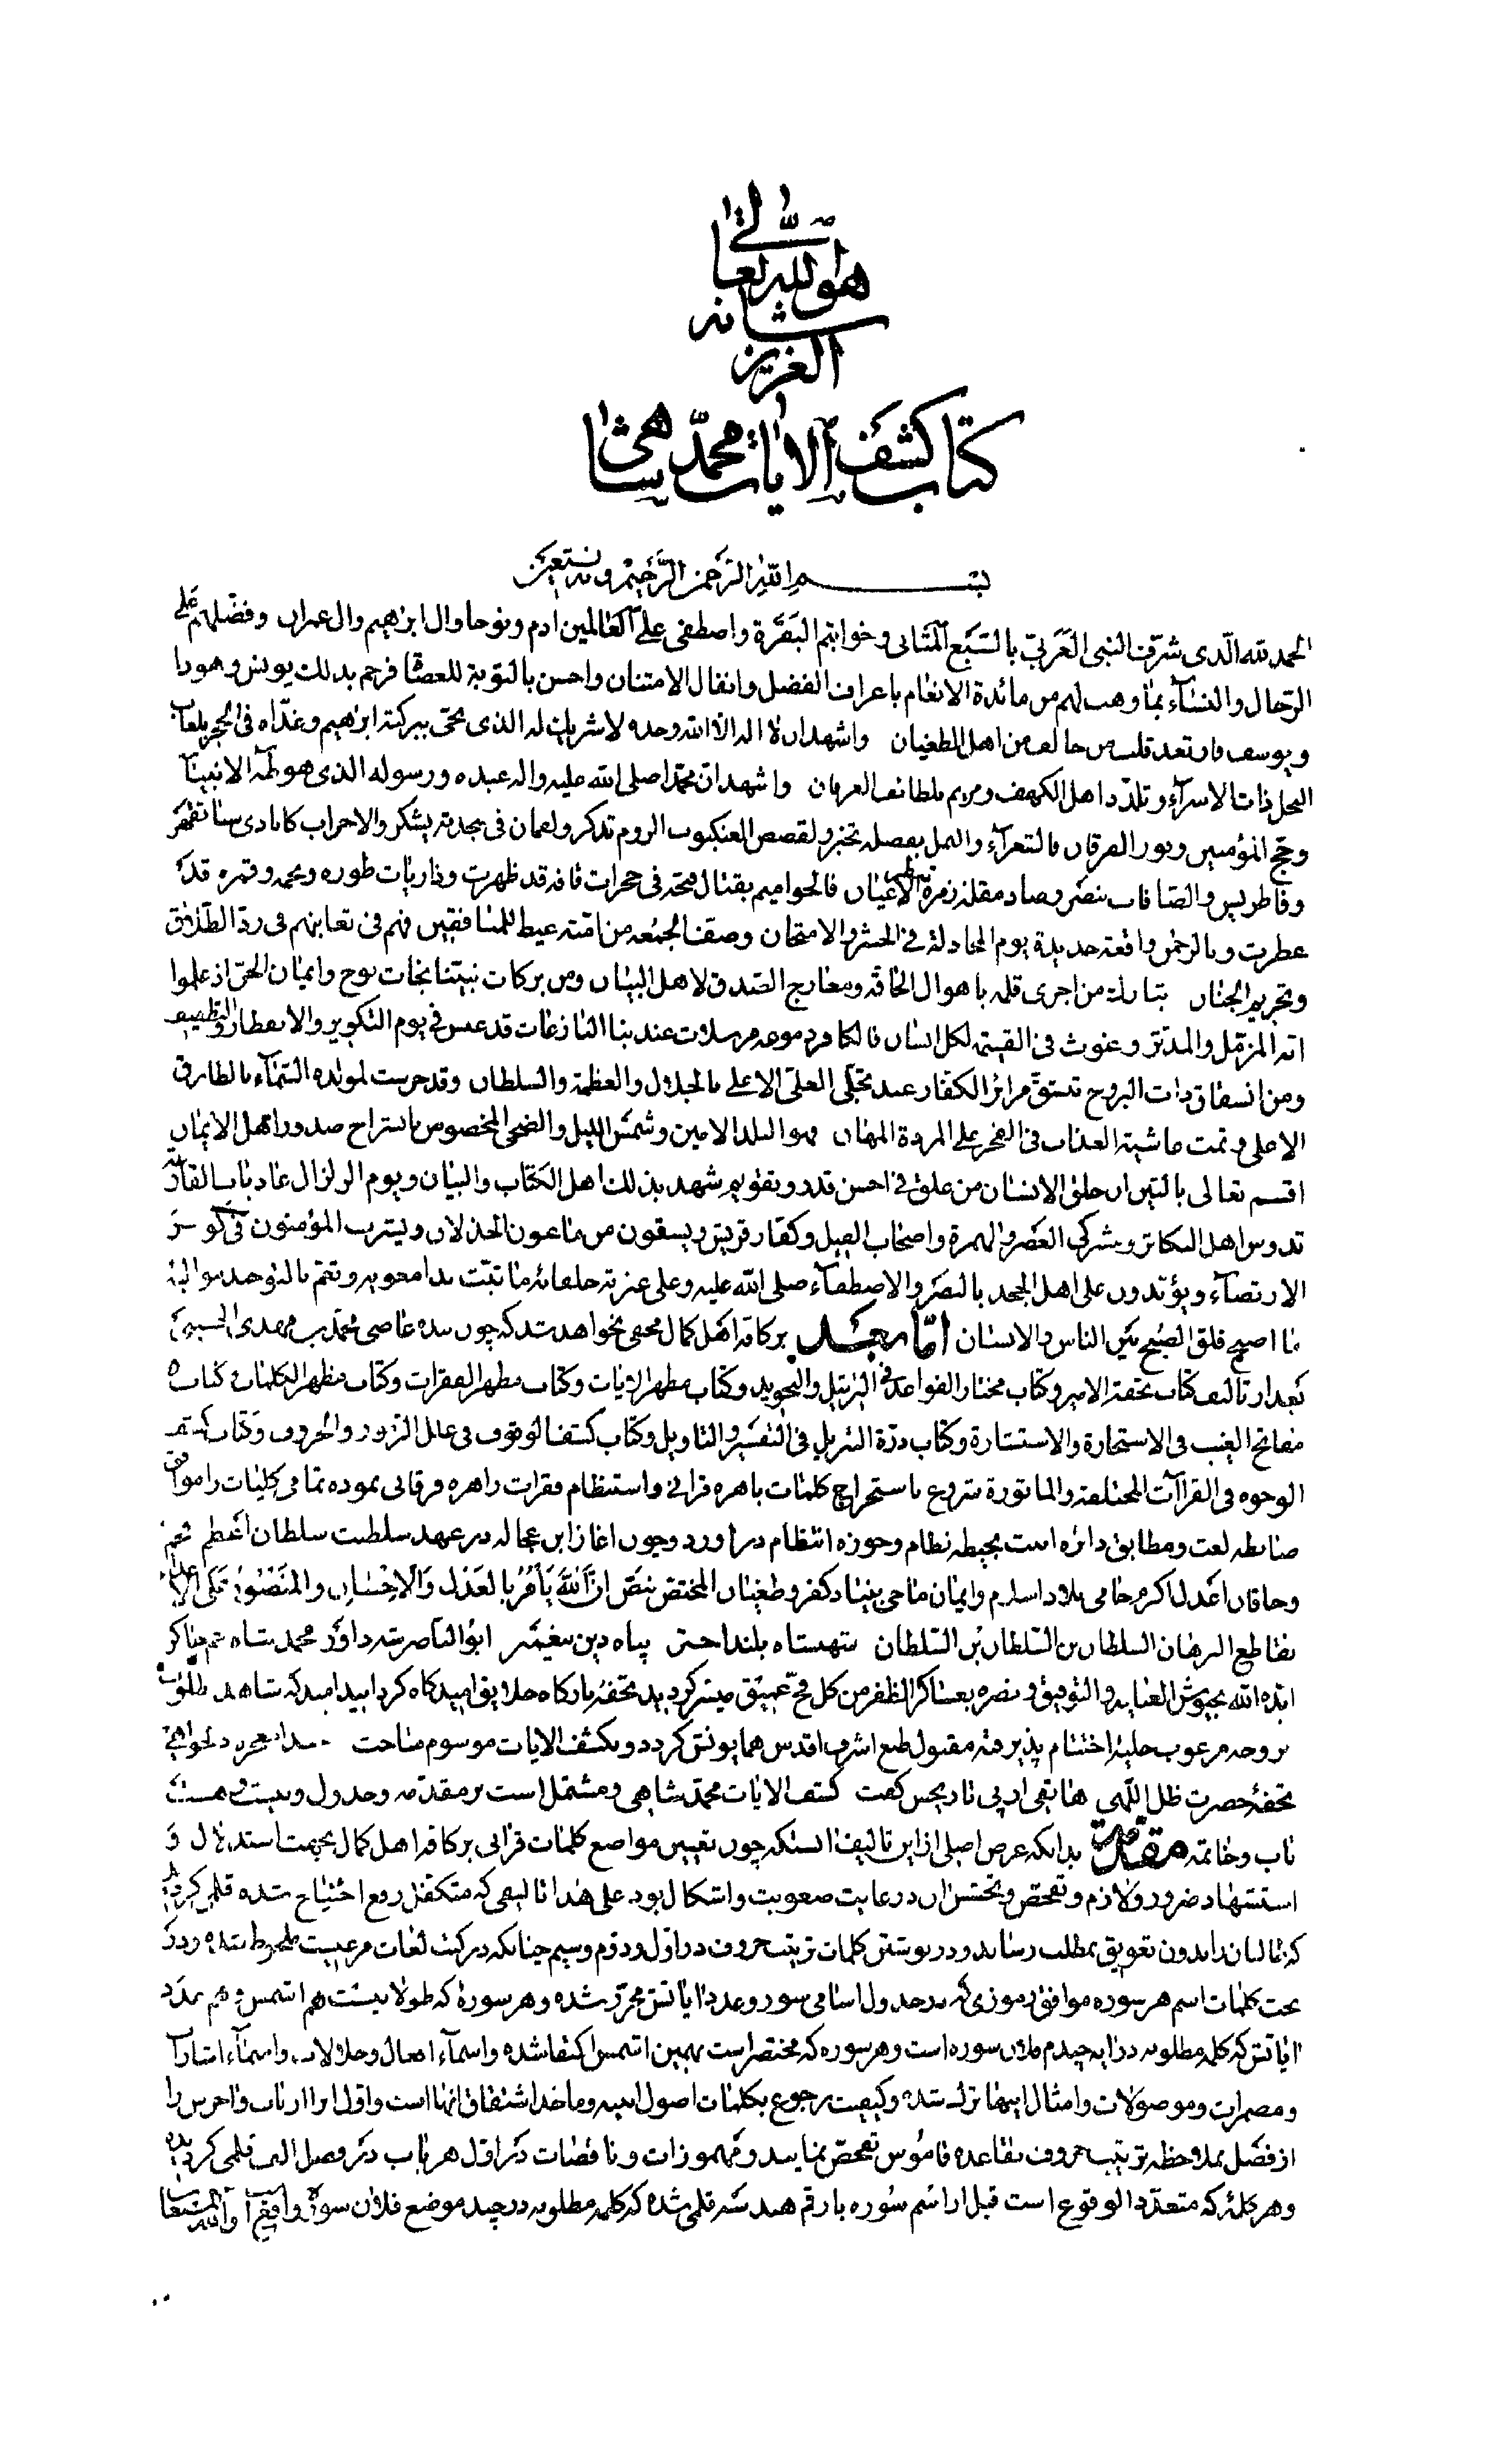 هو الله تعالى
شانه
العزيز
كتاب كشف الآيات محمد شاهى
بسم الله الرحمن الرحيم وبه نستعين
الحمد لله الذى شرف النبى العربى بالسبع المثانى وخواتيم البقرة واصطفى على العالمين ادم ونوحا وال ابراهيم وال عمران وفضلهم على
الرجال والنساء بما وهب لهم من مائدة الانعام باعراف الفضل وانفال الامتنان واحسن بالتوبة للعصاة فرحم بذلك يونس وهودا
ويوسف وارتعد قلب من خالف من اهل الطغيان واشهد ان لا اله الا الله وحده لا شريك له الذى نجى ببركته ابراهيم وغذاه فى الحجر بلعاب
النحل ذات الاسراء وتلذذ اهل الكهف ومريم بلطائف العرفان واشهد ان محمدا صلى الله عليه واله عبده ورسوله الذى هو طه الانبياء
وحج المؤمنين ونور الفرقان بالشعراء والنمل بفصله تخبر ولقصص العنكبوت الروم تذكر ولقمان فى سجدته يشكر والاحزاب كايادى سبا تقهر
وفاطر يس والصافات بنصر وصاد مقلة زمرة الاعيان فالحواميم بقتال فتحه فى حجرات قافه قد ظهرت وذاريات طوره ونجمه وقمره قد
عطرت وبالرحمن واقعة حديدة يوم المجادلة فى الحشر والامتحان وصف الجمعه من امته غيظ للمنافقين فهم فى تغابنهم فى رد الطلاق
وتحريم الجنان تبارك من اجرى قلمه باهوال الحاقه ومعارج الصدق لاهل البيان ومن بركات نبينا نجات نوح وايمان الجن اذ علموا
انه المزمل والمدثر وغوث فى القيمة لكل انسان فالكافر دموعه مرسلات عند نبا النازعات قد عبس فى يوم التكوير والانفطار والتطفيف
ومن انشقاق ذات البروج تنشق مرائر الكفار عند تجلى العلى الاعلى بالجلال والعظمة والسلطان وقد حرست لمولده السماء بالطارق
الاعلى وتمت غاشية العذاب فى الفجر على المردة المهان فهو البلد الامين وشمس الليل والضحى المخصوص بانشراح صدور اهل الايمان
اقسم تعالى بالتين ان خلق الانسان من علق فى احسن قدر وتقويم شهد بذلك اهل الكتاب والبيان ويوم الزلزال عاديات القارعة
تدوس اهل التكاثر ومشركى العصر والهمزة واصحاب الفيل وكفار قريش ويسقون من ماعون الخذلان ويشرب المؤمنون فى كوثر
الارتضاء ويؤيدون على اهل الجحد بالنصر والاصطفاء صلى الله عليه وعلى عترته خلفائه ما تبت يدا معويه ونعم بالتوحيد مواليه
ما اصبح فلق الصبح بين الناس والانسان اما بعد بر كافه اهل كمال مخفى نخواهد بود كه چون بنده عاصى محمد بن مهدى الحسينى
بعد از تاليف كتاب تحفة الامير وكتاب مختار القواعد فى الترتيل والتجويد وكتاب مظهر الايات وكتاب مظهر الفقرات وكتاب مظهر الكلمات وكتاب
مفاتح الغيب فى الاستخارة والاستشارة وكتاب درة التنزيل فى التفسير والتاويل وكتاب كشف الوقوف فى علل الزبور والحروف وكتاب كشف
الوجوه فى القراآت المختلفة والماثورة شروع باستخراج كلمات باهره قرانى واستنظام فقرات زاهره فرقانى نموده تمامى كليات را موافق
ضابطه لغت ومطابق دائره است بحيطه نظام وحوزه انتظام دراورد وچون اغاز اين عجاله در عهد سلطنت سلطان اعظم
وخاقان اعدل اكرم حامى بلاد اسلام وايمان ماحى بنياد كفر وطغيان المختص بنص ان الله يأمر بالعدل والاحسان والمنصور على الاعداء
بقاطع البرهان السلطان بن السلطان بن السلطان شهنشاه بلند اختر پناه دين پيغمبر ابو الناصر محمد شاه
ايده الله بجيوش العنايه والتوفيق ونصره بعساكر الظفر من كل فج عميق ميسر گرديد تحفه باركاه خلايق اميدگاه گردانيد اميد كه شاهد مطلوب
بر وجه مرغوب حليه اختتام پذيرفته مقبول طبع اشرف اقدس همايونش گردد وبكشف الايات موسوم ساخت
تحفه حضرت ظل اللهى هاتفى از پى تاريخش گفت كشف الايات محمد شاهى ومشتمل است بر مقدمه وجدول وبيست وهشت
باب وخاتمه مقدمه بدانكه غرض اصلى از اين تاليف انستكه چون تعيين مواضع كلمات قرانى بر كافه اهل كمال بجهت استدلال و
استشهاد ضرور ولازم وتفحص وتجسس ان در غايت صعوبت واشكال بود على هذا تاليفى كه متكفل رفع احتياج شده قلمى گرديد
كه طالبان را بدون تعويق بمطلب رساند ودر نوشتن كلمات ترتيب حروف در اول ودوم وسيم چنانكه در كتب لغات مرعيست ملحوظ شده ودر
تحت كلمات اسم هر سوره موافق رموزى كه در جدول اسامى سور وعدد اياتش محرر شده وهر سوره كه طولانيست هم اسمش وهم عدد
اياتش كه كلمه مطلوبه در ايه چندم فلان سوره است وهر سوره كه مختصر است بهمين اسمش اكتفا شده واسماء افعال وجلالات واسماء اشارات
ومضمرات وموصولات وامثال اينها ترك شده وكيفيت رجوع بكلمات اصول ابنيه وماخذ اشتقاق انها است واول انرا از باب واخرش را
از فصل بملاحظه ترتيب حروف بقاعده قاموس تفحص نمايند ومهموزات وناقصات در اول هر باب در فصل الف قلمى گرديده
وهر كلمه كه متعدد الوقوع است قبل از اسم سوره بارقم هندسه قلمى شده كه كلمه مطلوبه در چند موضع فلان سوره واقع والله المستعان